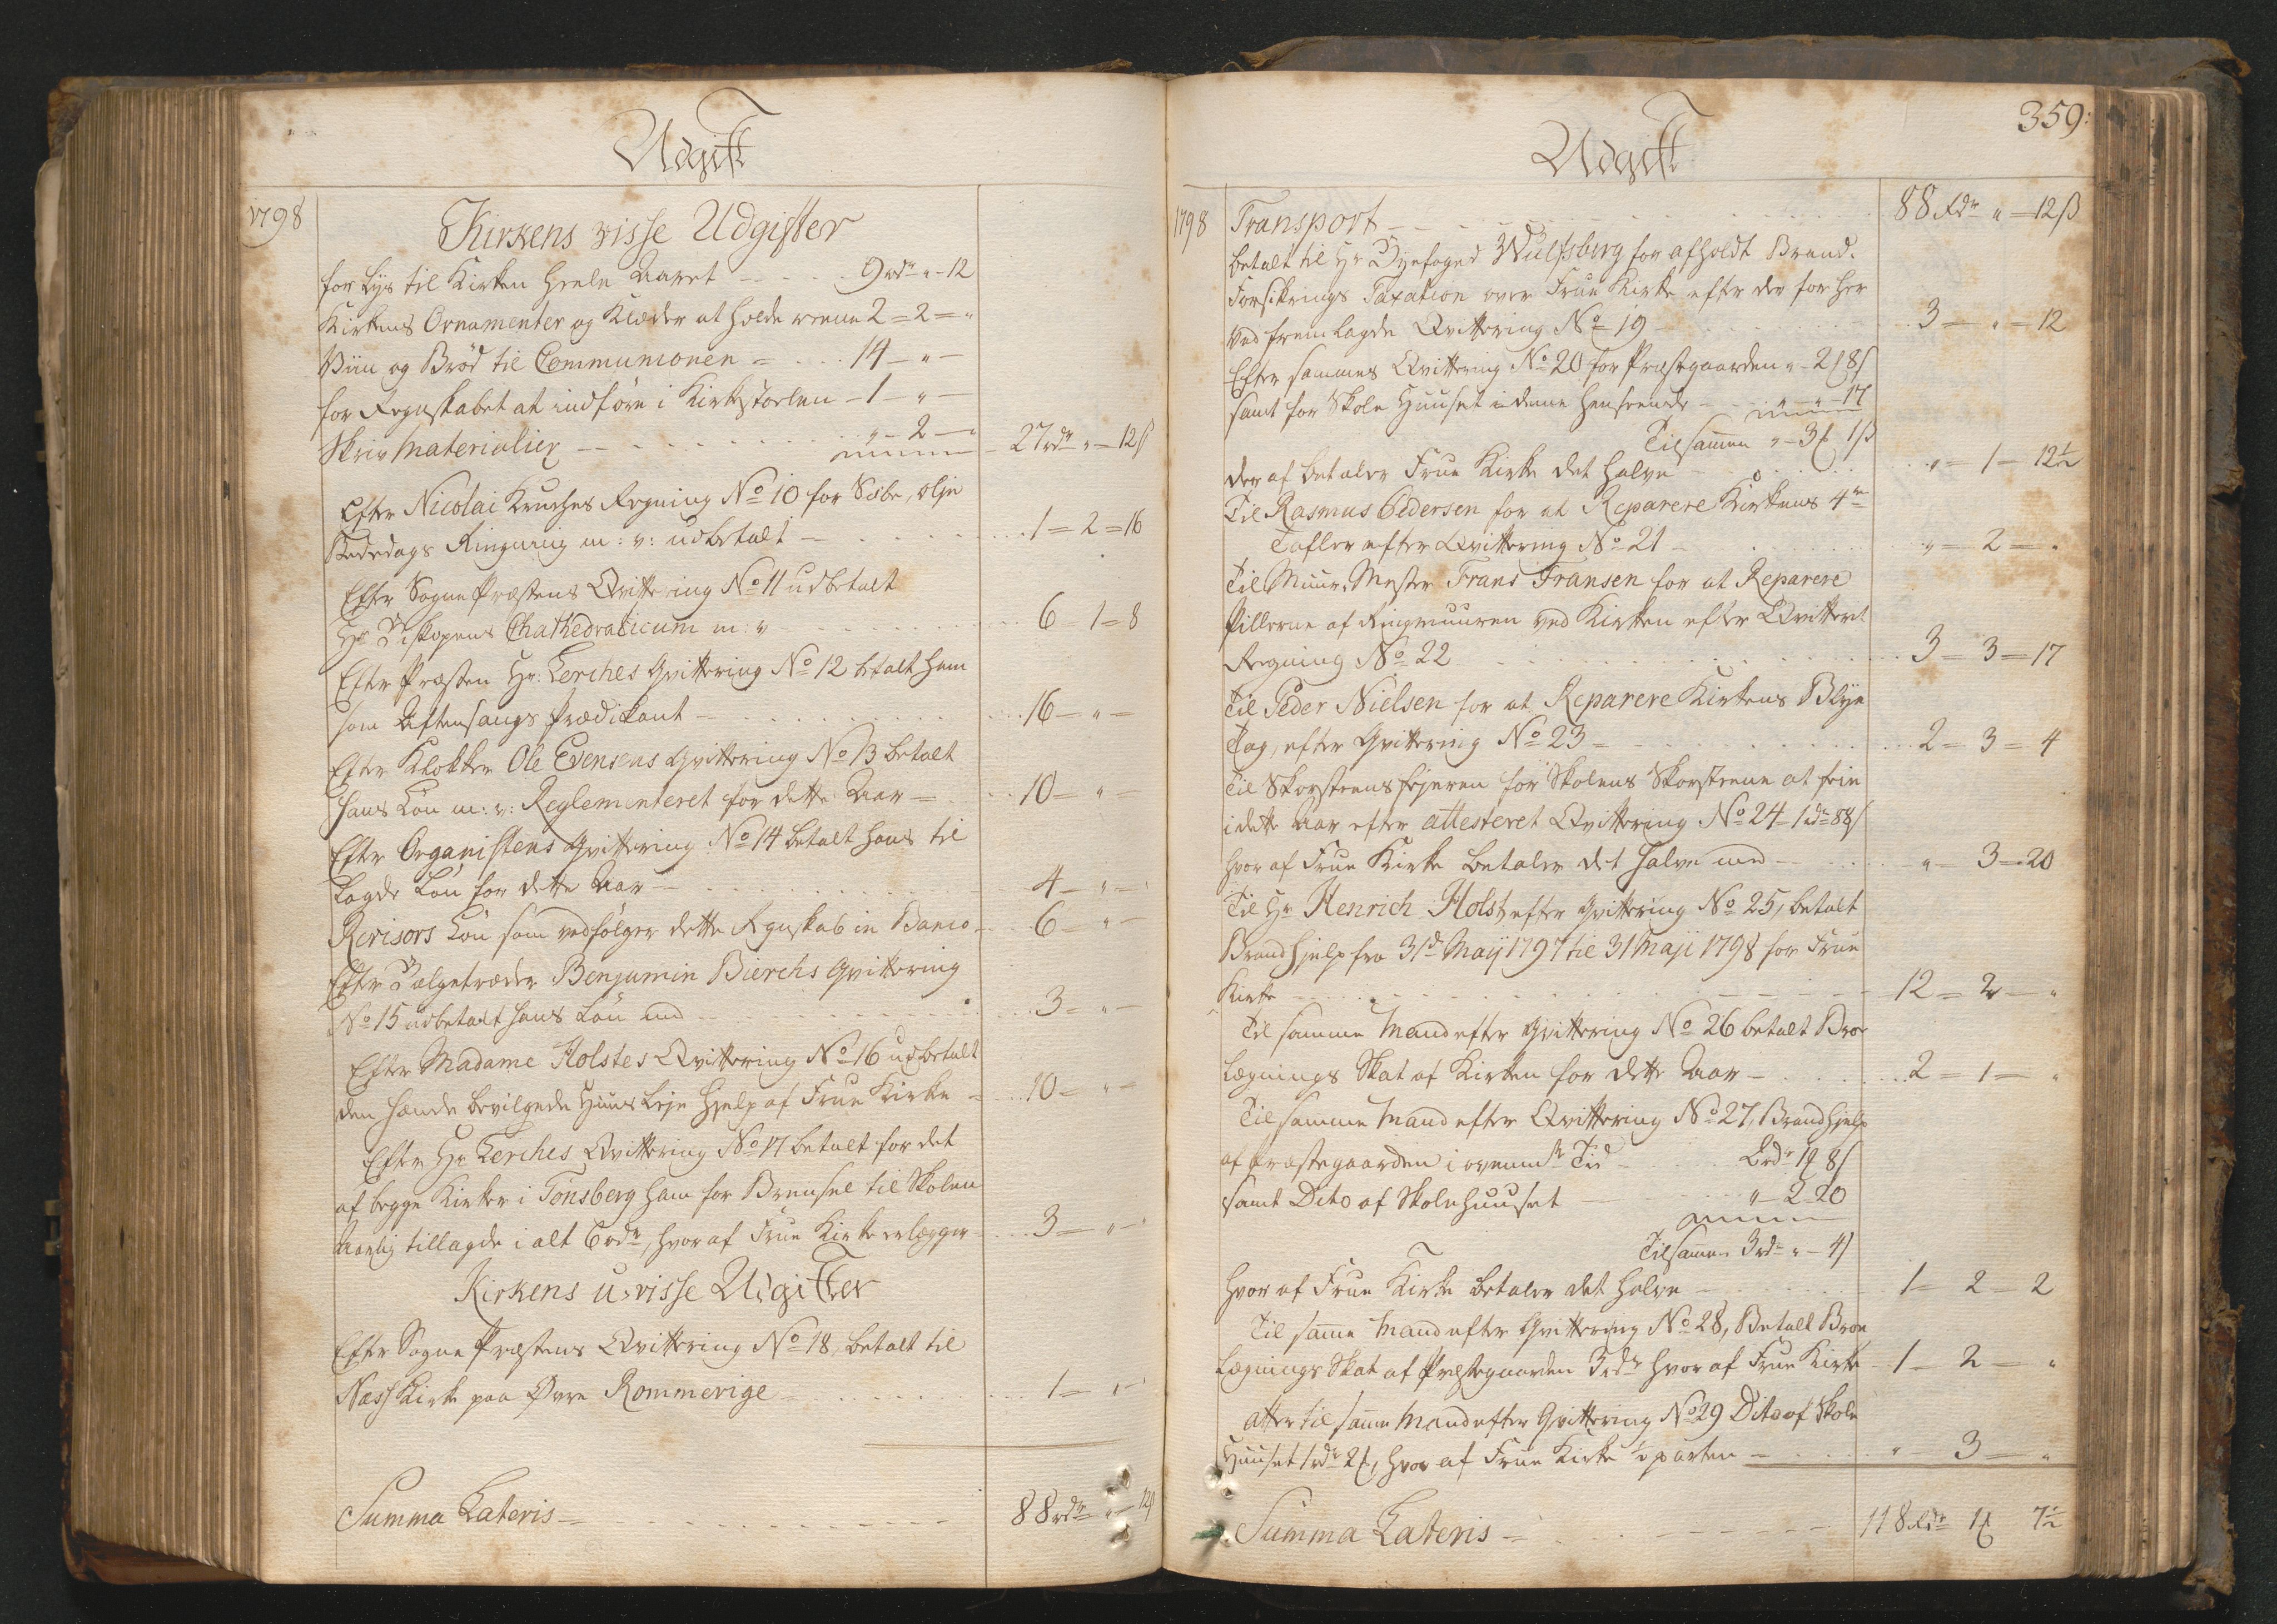 Udgift
1798
Kirkens visse Udgifter
for Lys til Kirken heele Aaret - - - - 9 rdr „ - 12
Kirkens Ornamenter og Klæder at holde reene 2 = 2 = „
Viin og Brød til Communionen - - - 14 - „ -
for Regnskabet at indføre i Kirkestoelen - 1 - „ -
Skriv Materialier - - - - - „ - 2 - „ 27 rdr „ = 12 ß
Efter Nicolai Kruches Regning No 10 for Sæbe, olje
Bededags Ringning m: v: udbetalt - - - 1 = 2 = 16
Efter Sogne Præstens Qvittering No 11 udbetalt
Hr Biskopens Chathedraticum m: v - - - 6 - 1 = 8
Efter Præsten Hr: Lerches Qvittering No 12 betalt ham
som Aftensangs Prædikant - - - 16 - „ -
Efter Klokker Ole Evensens Qvittering No 13 betalt
hans Løn m: v: Reglementeret for dette Aar - - - 10 - „ -
Efter Organistens Qvittering No 14 betalt hans til
lagde Løn for dette Aar - - - 4 - „ -
Revisors Løn som vedfølger dette Regnskab in Banco - 6 - „ -
Efter Bælgetræder Benjamin Bierchs Qvittering
No 15 udbetalt hans Løn med - - - 3 = „ -
Efter Madame Holstes Qvittering No 16 udbetalt
den hende bevilgede Huus Leje Hjelp af Frue Kirke - 10 - „ -
Efter Hr Lerches Qvittering No 17 betalt for det
af begge Kirker i Tønsberg ham for Brensel til Skolen
Aarlig tillagde i alt 6 rdr, hvoraf Frue Kirke erlægger - 3 - „ -
Kirkens u-visse Udgifter
Efter Sogne Præstens Qvittering No 18, betalt til
Næss Kirke paa Øvre Rommerige - - - 1 - „ -
Summa Lateris - - - 88 rdr „ - 12 ß
359:
Udgift
1798 Transport - - - 88 Rdr „ - 12 ß
betalt til Hr Byefoged Wulfsberg for afholdt Brand-
Forsikrings Taxation over Frue Kirke efter der for her
ved fremlagde Qvittering No 19 - - - 3 - „ - 12
Efter sammes Qvittering No 20 for Præstegaarden „ - 2 ƒ 8 ß
samt for Skole Huuset i denne henseende - - - „ - „ - 17
Tilsammen „ - 3 ƒ 1 ß
der af betaler Frue Kirke det halve - - - „ - 1 - 12½
Til Rasmus Pedersen for at Reparere Kirkens 4re
Tafler efter Qvittering No 21 - - - „ = 2 = „
Til Muur-Mester Frans Fransen for at Reparere
Pillerne af Ringmuuren ved Kirken efter Qvitteret
Regning No 22 - - - 3 = 3 = 17
Til Peder Nielsen for at Reparere Kirkens Blye
Tag, efter Qvittering No 23 - - - 2 = 3 = 4
Til Skorsteensfejeren for Skolens Skorsteene at feie
i dette Aar efter attesteret Qvittering No 24 - 1 rdr 88 ß
hvor af Frue Kirke betaler det halve med - - - „ - 3 = 20
Til Hr Henrich Holst efter Qvittering No 25, betalt
Brand hjelp fra 31d Maij 1797 til 31 Maji 1798 for Frue
Kirke - - - 12 = 2 - „
Til samme Mand efter Qvittering No 26 betalt Broe
lægnings Skat af Kirken for dette Aar - - - 2 = 1 - „
Til samme Mand efter Qvittering No 27, Brandhjelp
af Præstegaarden i ovenmte Tid - - - 2 rdr 1 ƒ 8 ß
samt Dito af Skolehuuset - - - „ - 2 - 20
Tilsammen 3 rdr „ - 4 ß
hvor af Frue Kirke betaler det halve - - - 1 - 2 - 2
Til samme Mand efter Qvittering No 28, Betalt Broe
lægnings Skat af Præstegaarden 3 rdr hvor af Frue Kirke - 1 - 2 - „
atter til samme Mand efter Qvittering No 29 Dito af Skole
Huuset 1 rdr 2 ƒ, hvor af Frue Kirke ½ parten - - - „ - 3 - „
Summa Lateris - - - 118 Rdr 1 ƒ 7½